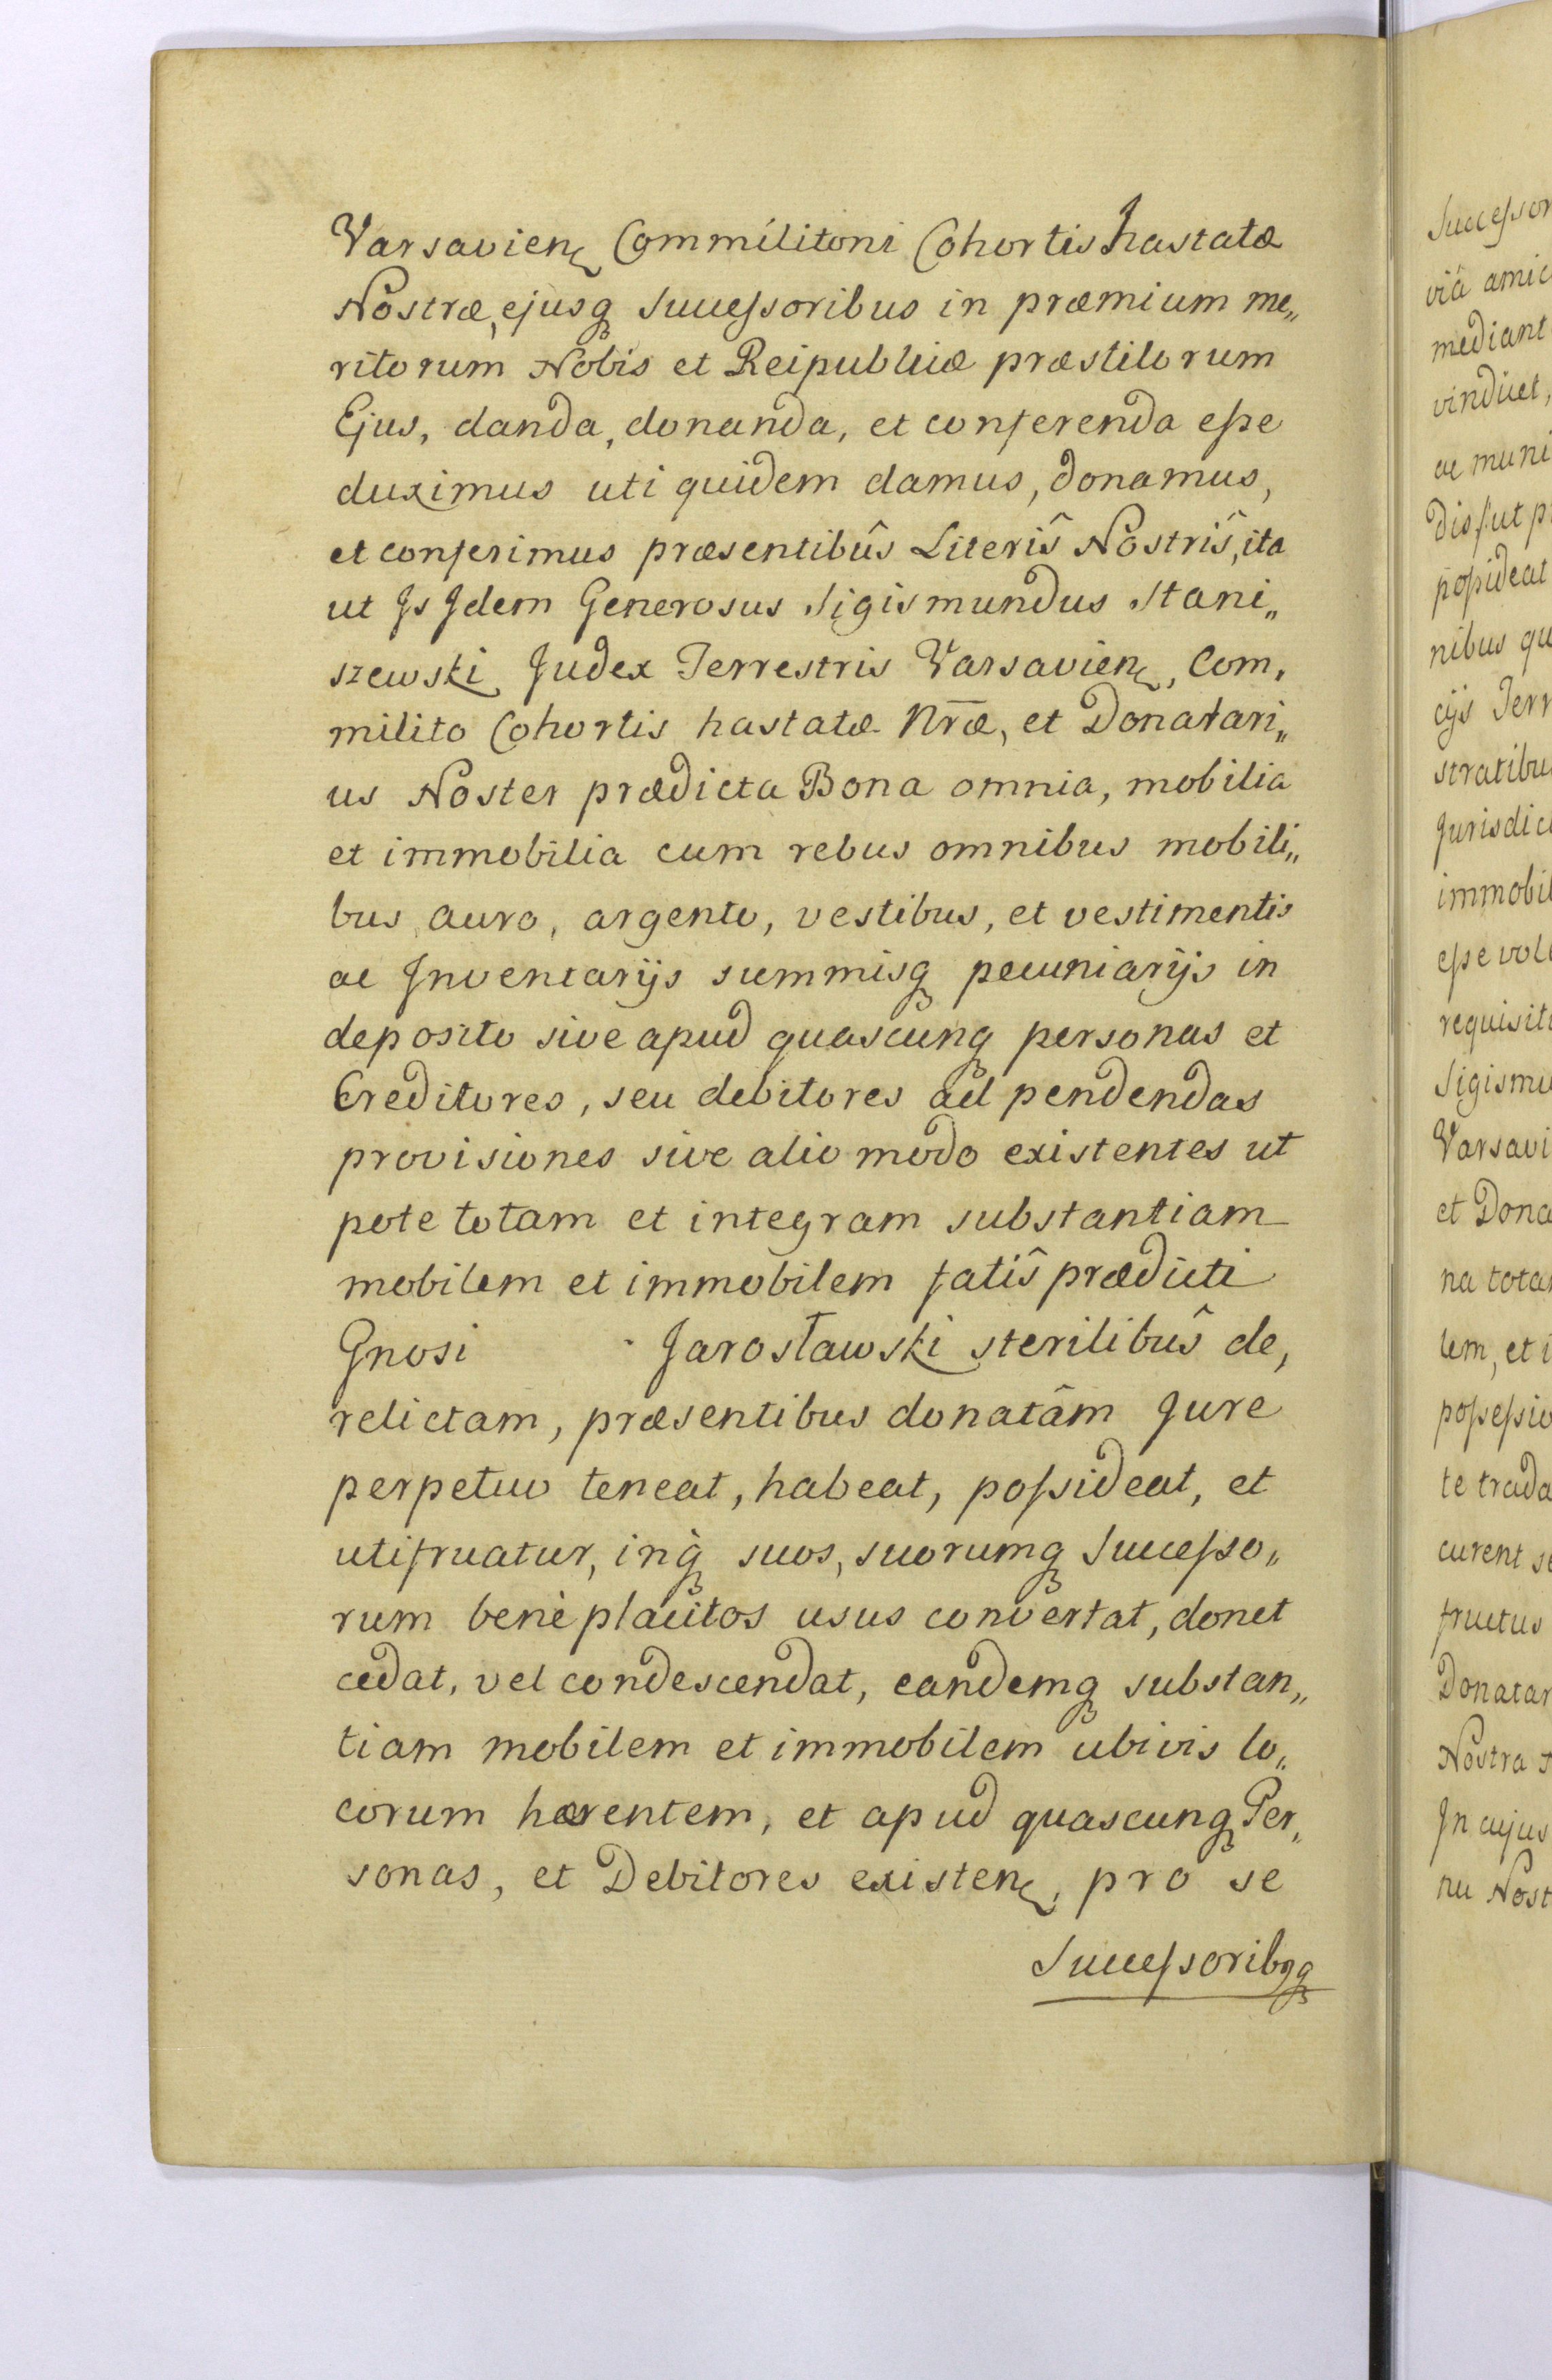 Varsavien Commilitoni Cohortis hastatæ
Nostræ, ejusq Successoribus in præmium me„
ritorum Nobis et Reipublicæ præstitorum
Ejus, danda, donanda, et conferenda esse
duximus uti quidem damus, donamus,
et conferimus præsentibûs Literîs Nostrîs, ita
ut Js Jdem Generosus Sigismundus Stani„
szewski Judex Terrestris Varsavien, Com,
milito Cohortis hastatæ Nr̄æ, et Donatari„
us Noster prædicta Bona omnia, mobilia
et immobilia cum rebus omnibus mobili„
bus auro, argento, vestibus, et vestimentis
ac Jnventarijs summisq pecuniarijs in
deposito sive apud quascunq personas et
Creditores, seu debitores ad pendendas
provisiones sive alio modo existentes ut
pote totam et integram substantiam
mobilem et immobilem fatîs prædicti
Gnosi Jarosławski sterilibûs de,
relictam, præsentibus donatâm Jure
perpetuo teneat, habeat, possideat, et
utifruatur, inq suos, suorumq Successo„
rum benè placitos usus convertat, donet
cedat, vel condescendat, eandemq substan„
tiam mobilem et immobilem ubivis lo„
corum hærentem, et apud quascunq Per„
sonas, et Debitores existen, pro se
Successoribq
Successor
viâ amic
mediant
vindicet,
ac muni
dis sut p
possideat
nibus qu
cijs Terr
stratibu
Jurisdic
immobil
esse vol
requisit
Sigismu
Varsavi
et Dona
na tota
lem, et i
possessio
te trada
curent se
fructus
Donatar
Nostra
Jn cujus
nu Nost